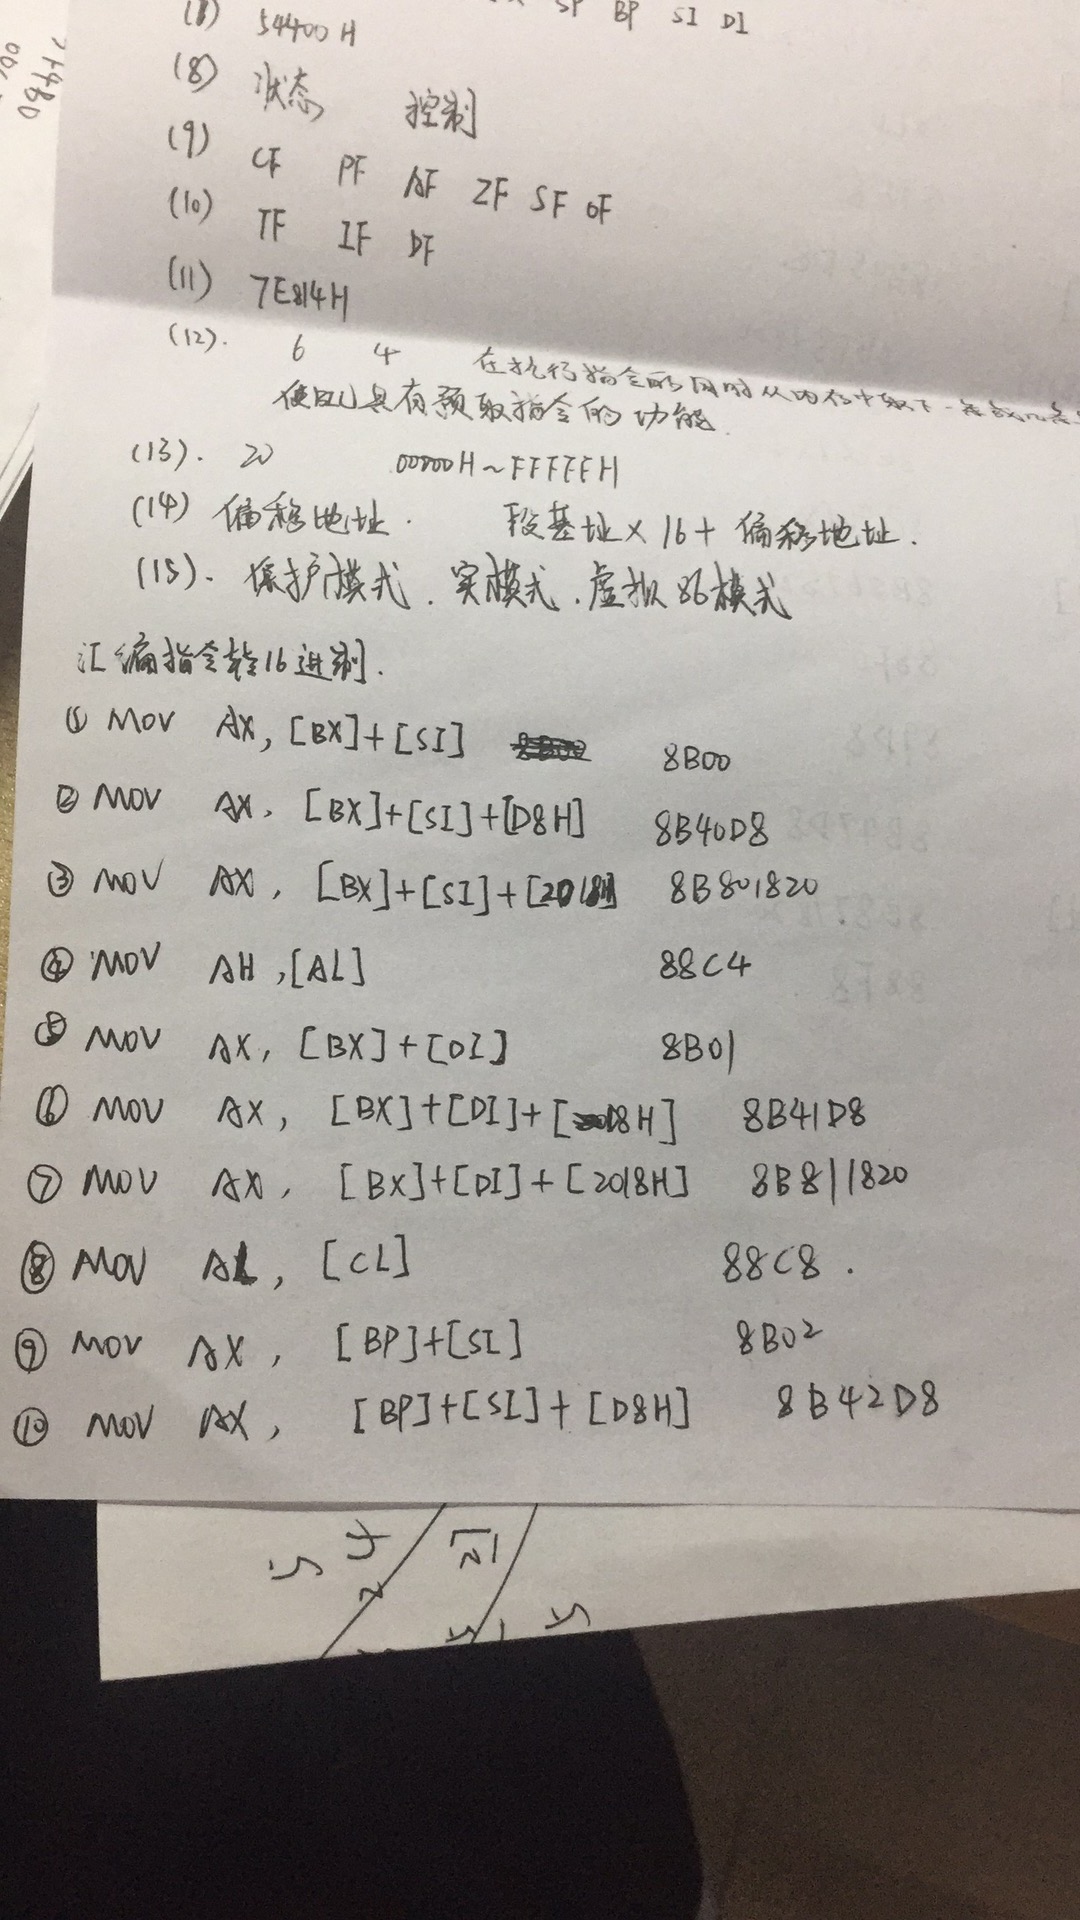 SP BP SI DI
(7) 54400H
(8) 状态 控制
(9) CF PF AF ZF SF OF
(10) TF IF DF
(11) 7E814H
(12). 6 4 在执行指令的同时从内存中取下一条或几条
使BIU具有预取指令的功能.
(13). 20 00000H~FFFFFH
(14) 偏移地址. 段基址×16+偏移地址.
(15). 保护模式、实模式、虚拟86模式
汇编指令转16进制.
① MOV AX, [BX]+[SI] 8B00
② MOV AX, [BX]+[SI]+[D8H] 8B40D8
③ MOV AX, [BX]+[SI]+[2018H] 8B801820
④ MOV AH, [AL] 88C4
⑤ MOV AX, [BX]+[DI] 8B01
⑥ MOV AX, [BX]+[DI]+[D8H] 8B41D8
⑦ MOV AX, [BX]+[DI]+[2018H] 8B811820
⑧ MOV AL, [CL] 88C8.
⑨ MOV AX, [BP]+[SI] 8B02
⑩ MOV AX, [BP]+[SI]+[D8H] 8B42D8